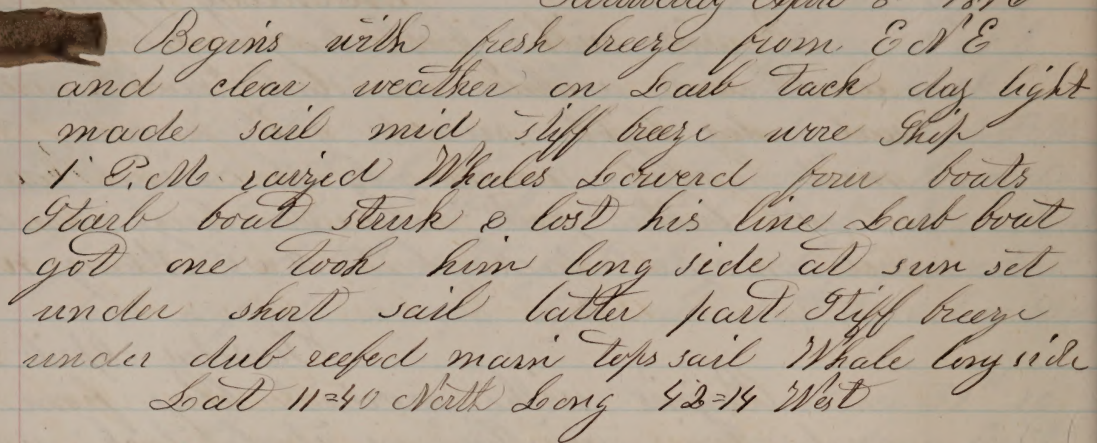 April 8
Begins with fresh breeze from E N E
and clear weather on Larb tack day light
made sail mid stiff breeze wore Ship
1 P.M. raized Whales Lowerd four boats
Starb boat struk & lost his line Larb boat
got one took him long side at sun set
under short sail latter part Stiff breeze
under dub reefed main tops sail Whale long side
Lat 11=40 North Long 42=14 West